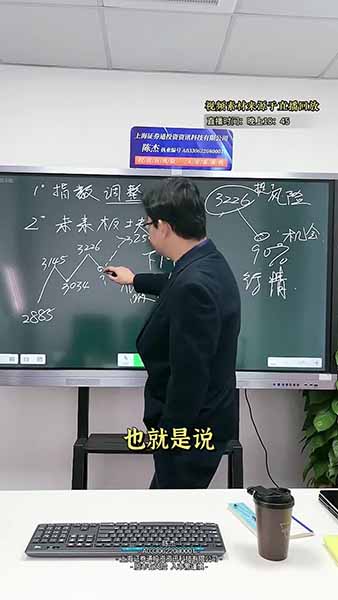 视频素材来源于直播回放
直播时间：晚上18：45
上海证券通投资资讯科技有限公司
陈杰 执业编号A0330622080001
1° 指数调整
2° 未来板块
3226
找风险
机会
90%
行情
3145
3226
3034
2885
也就是说
陈杰
A0330622080001
上海证券通投资资讯科技有限公司